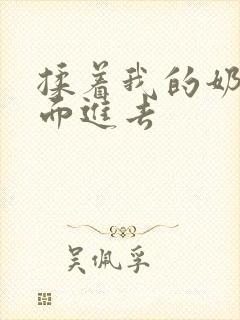 揉着我的奶
而进去
吴佩孚